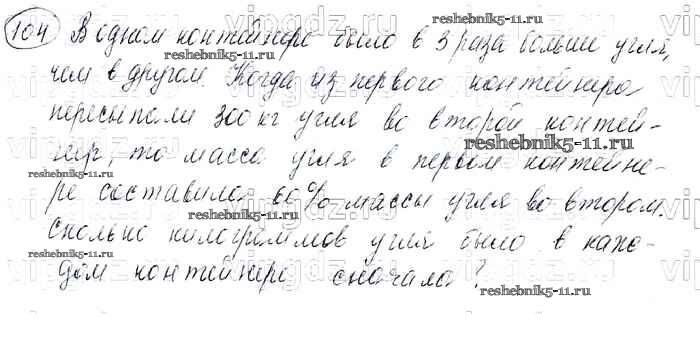 104 В одном контейнере было в 3 раза больше угля,
чем в другом. Когда из первого контейнера
пересыпали 300 кг угля во второй контей-
нер, то масса угля в первом контейне-
ре составила 60% массы угля во втором.
Сколько килограммов угля было в каж-
дом контейнере сначала?
reshebnik5-11.ru
reshebnik5-11.ru
reshebnik5-11.ru
reshebnik5-11.ru
reshebnik5-11.ru
reshebnik5-11.ru
reshebnik5-11.ru
reshebnik5-11.ru